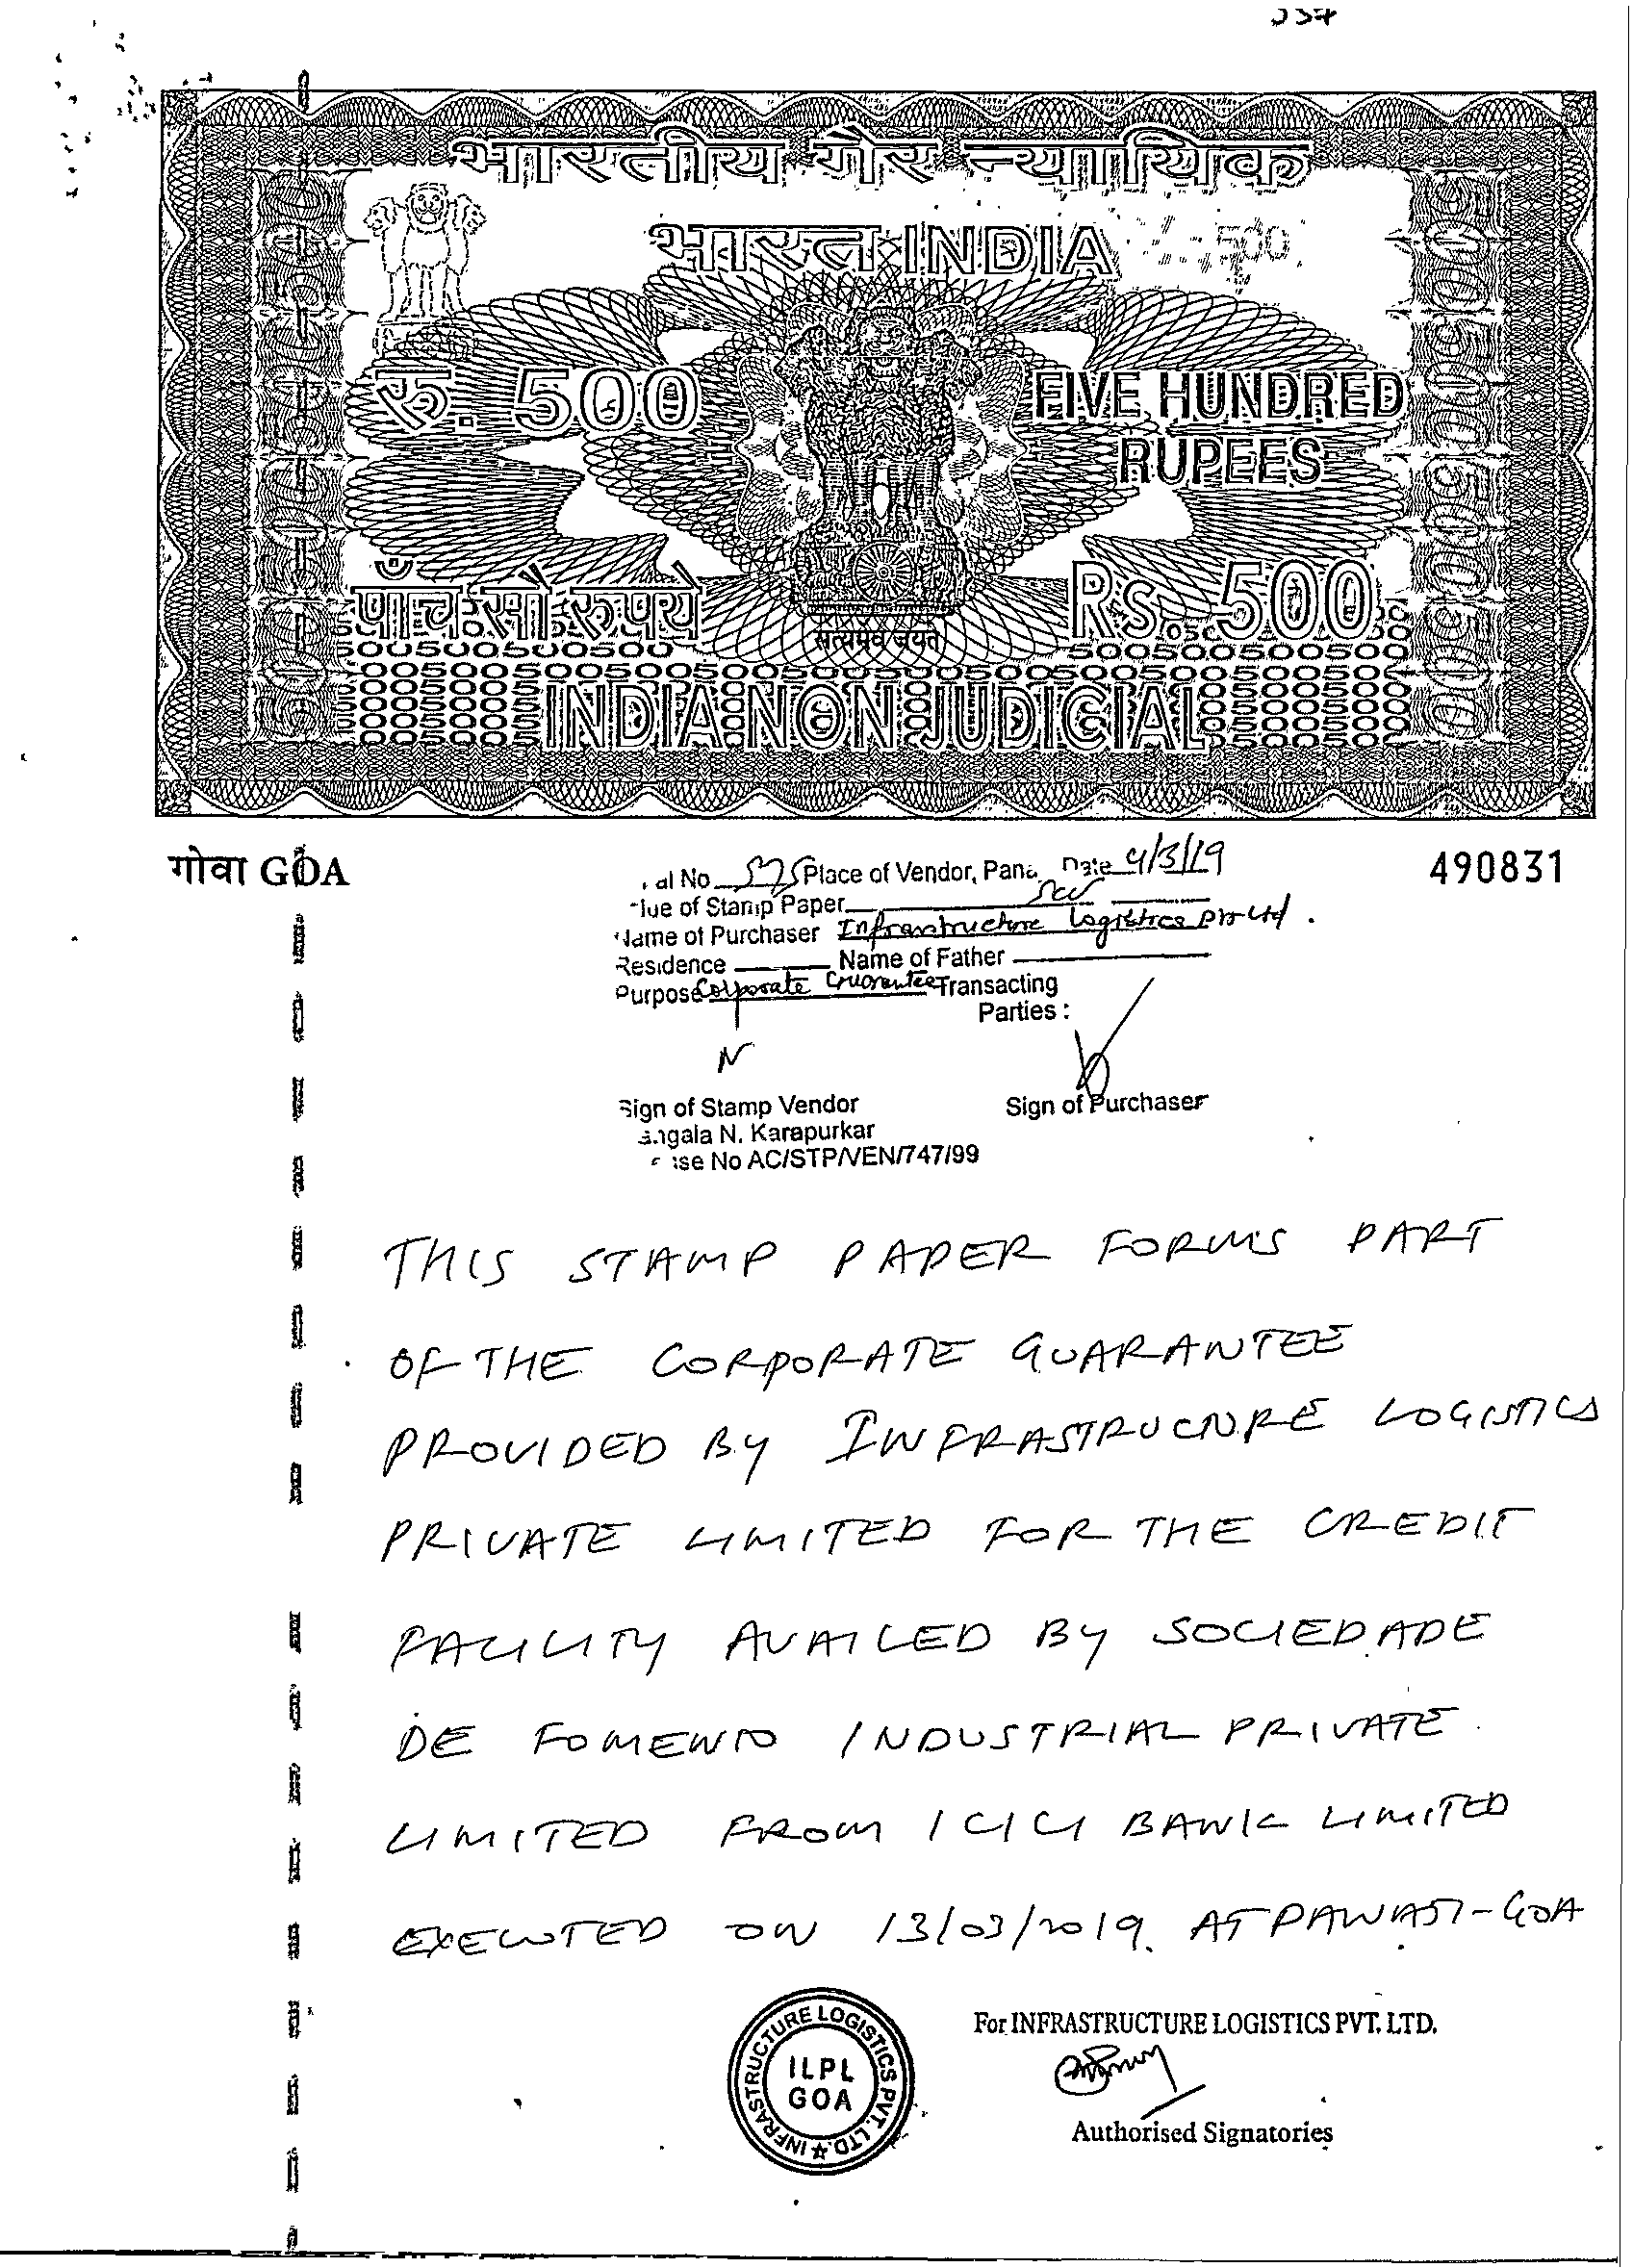 भारतीय गैर न्यायिक
भारत INDIA
रु. 500
FIVE HUNDRED
RUPEES
पाँच सौ रुपये
Rs. 500
सत्यमेव जयते
INDIA NON JUDICIAL
गोवा GOA
490831
al No 575 Place of Vendor, Pana Date 4/3/19
lue of Stamp Paper
Name of Purchaser Infrastructure Logistics Pvt Ltd.
Residence Name of Father
Purpose Corporate Guarantee Transacting
Parties :
Sign of Stamp Vendor Sign of Purchaser
N. Karapurkar
se No AC/STP/VEN/747/99
THIS STAMP PAPER FORMS PART
OF THE CORPORATE GUARANTEE
PROVIDED BY INFRASTRUCTURE LOGISTICS
PRIVATE LIMITED FOR THE CREDIT
FACILITY AVAILED BY SOCIEDADE
DE FOMENTO INDUSTRIAL PRIVATE
LIMITED FROM ICICI BANK LIMITED
EXECUTED ON 13/03/2019. AT PANAJI-GOA
INFRASTRUCTURE LOGISTICS PVT. LTD.
ILPL
GOA
For INFRASTRUCTURE LOGISTICS PVT. LTD.
Authorised Signatories